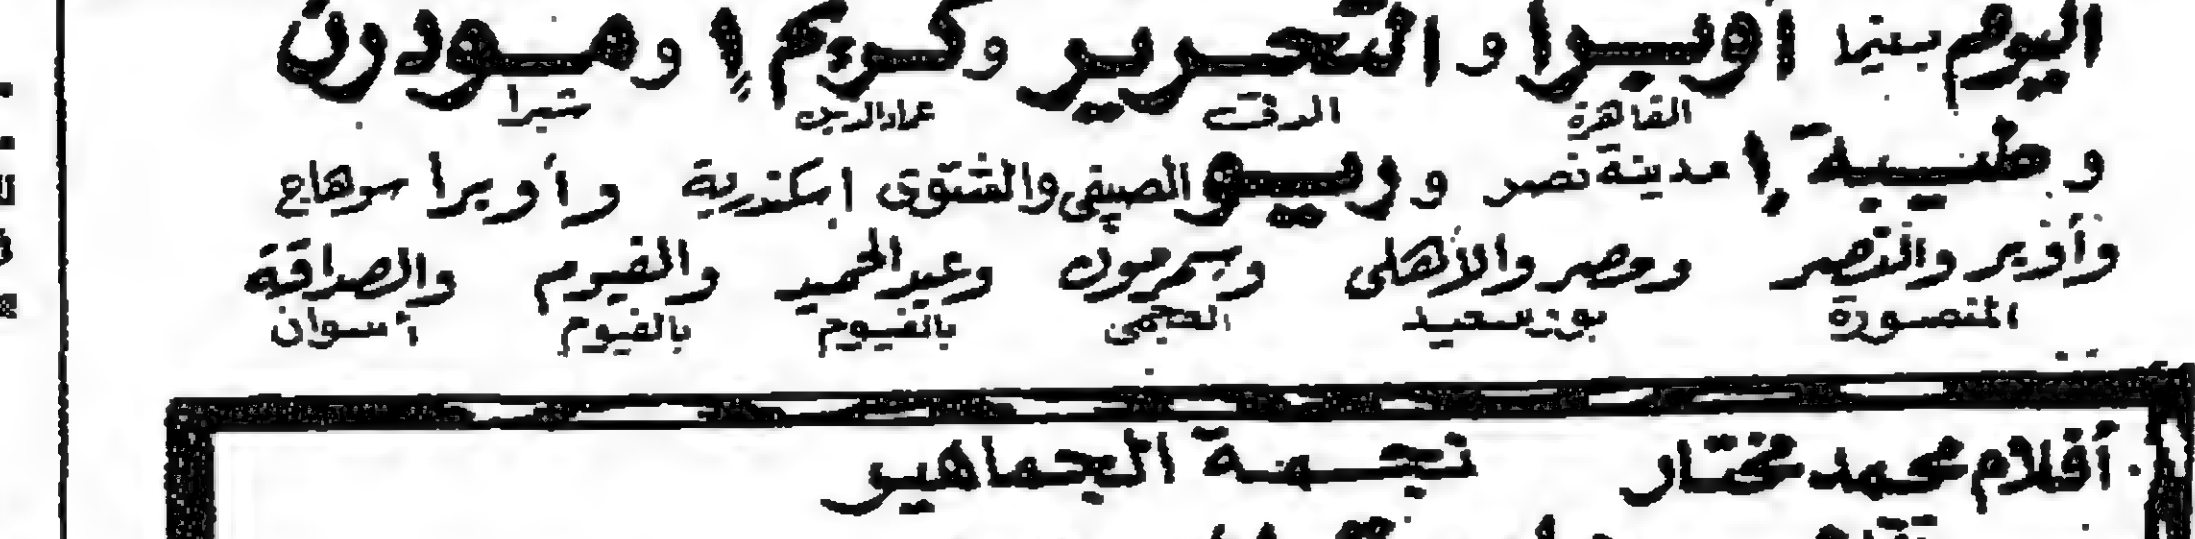 اليوم بسينما أوبرا والتحرير وكريم ١ ومودرن
القاهرة الدقى عماد الدين شبرا
وطيبة ١ مدينة نصر وريو الصيفى والشتوى اسكندرية وأوبرا سوهاج
وأوبر والنصر ومصر والأهلى وسمرمون وعبد الحميد والفيوم والصداقة
المنصورة بورسعيد العجمى بالفيوم بالفيوم أسوان
أفلام محمد مختار نجمة الجماهير